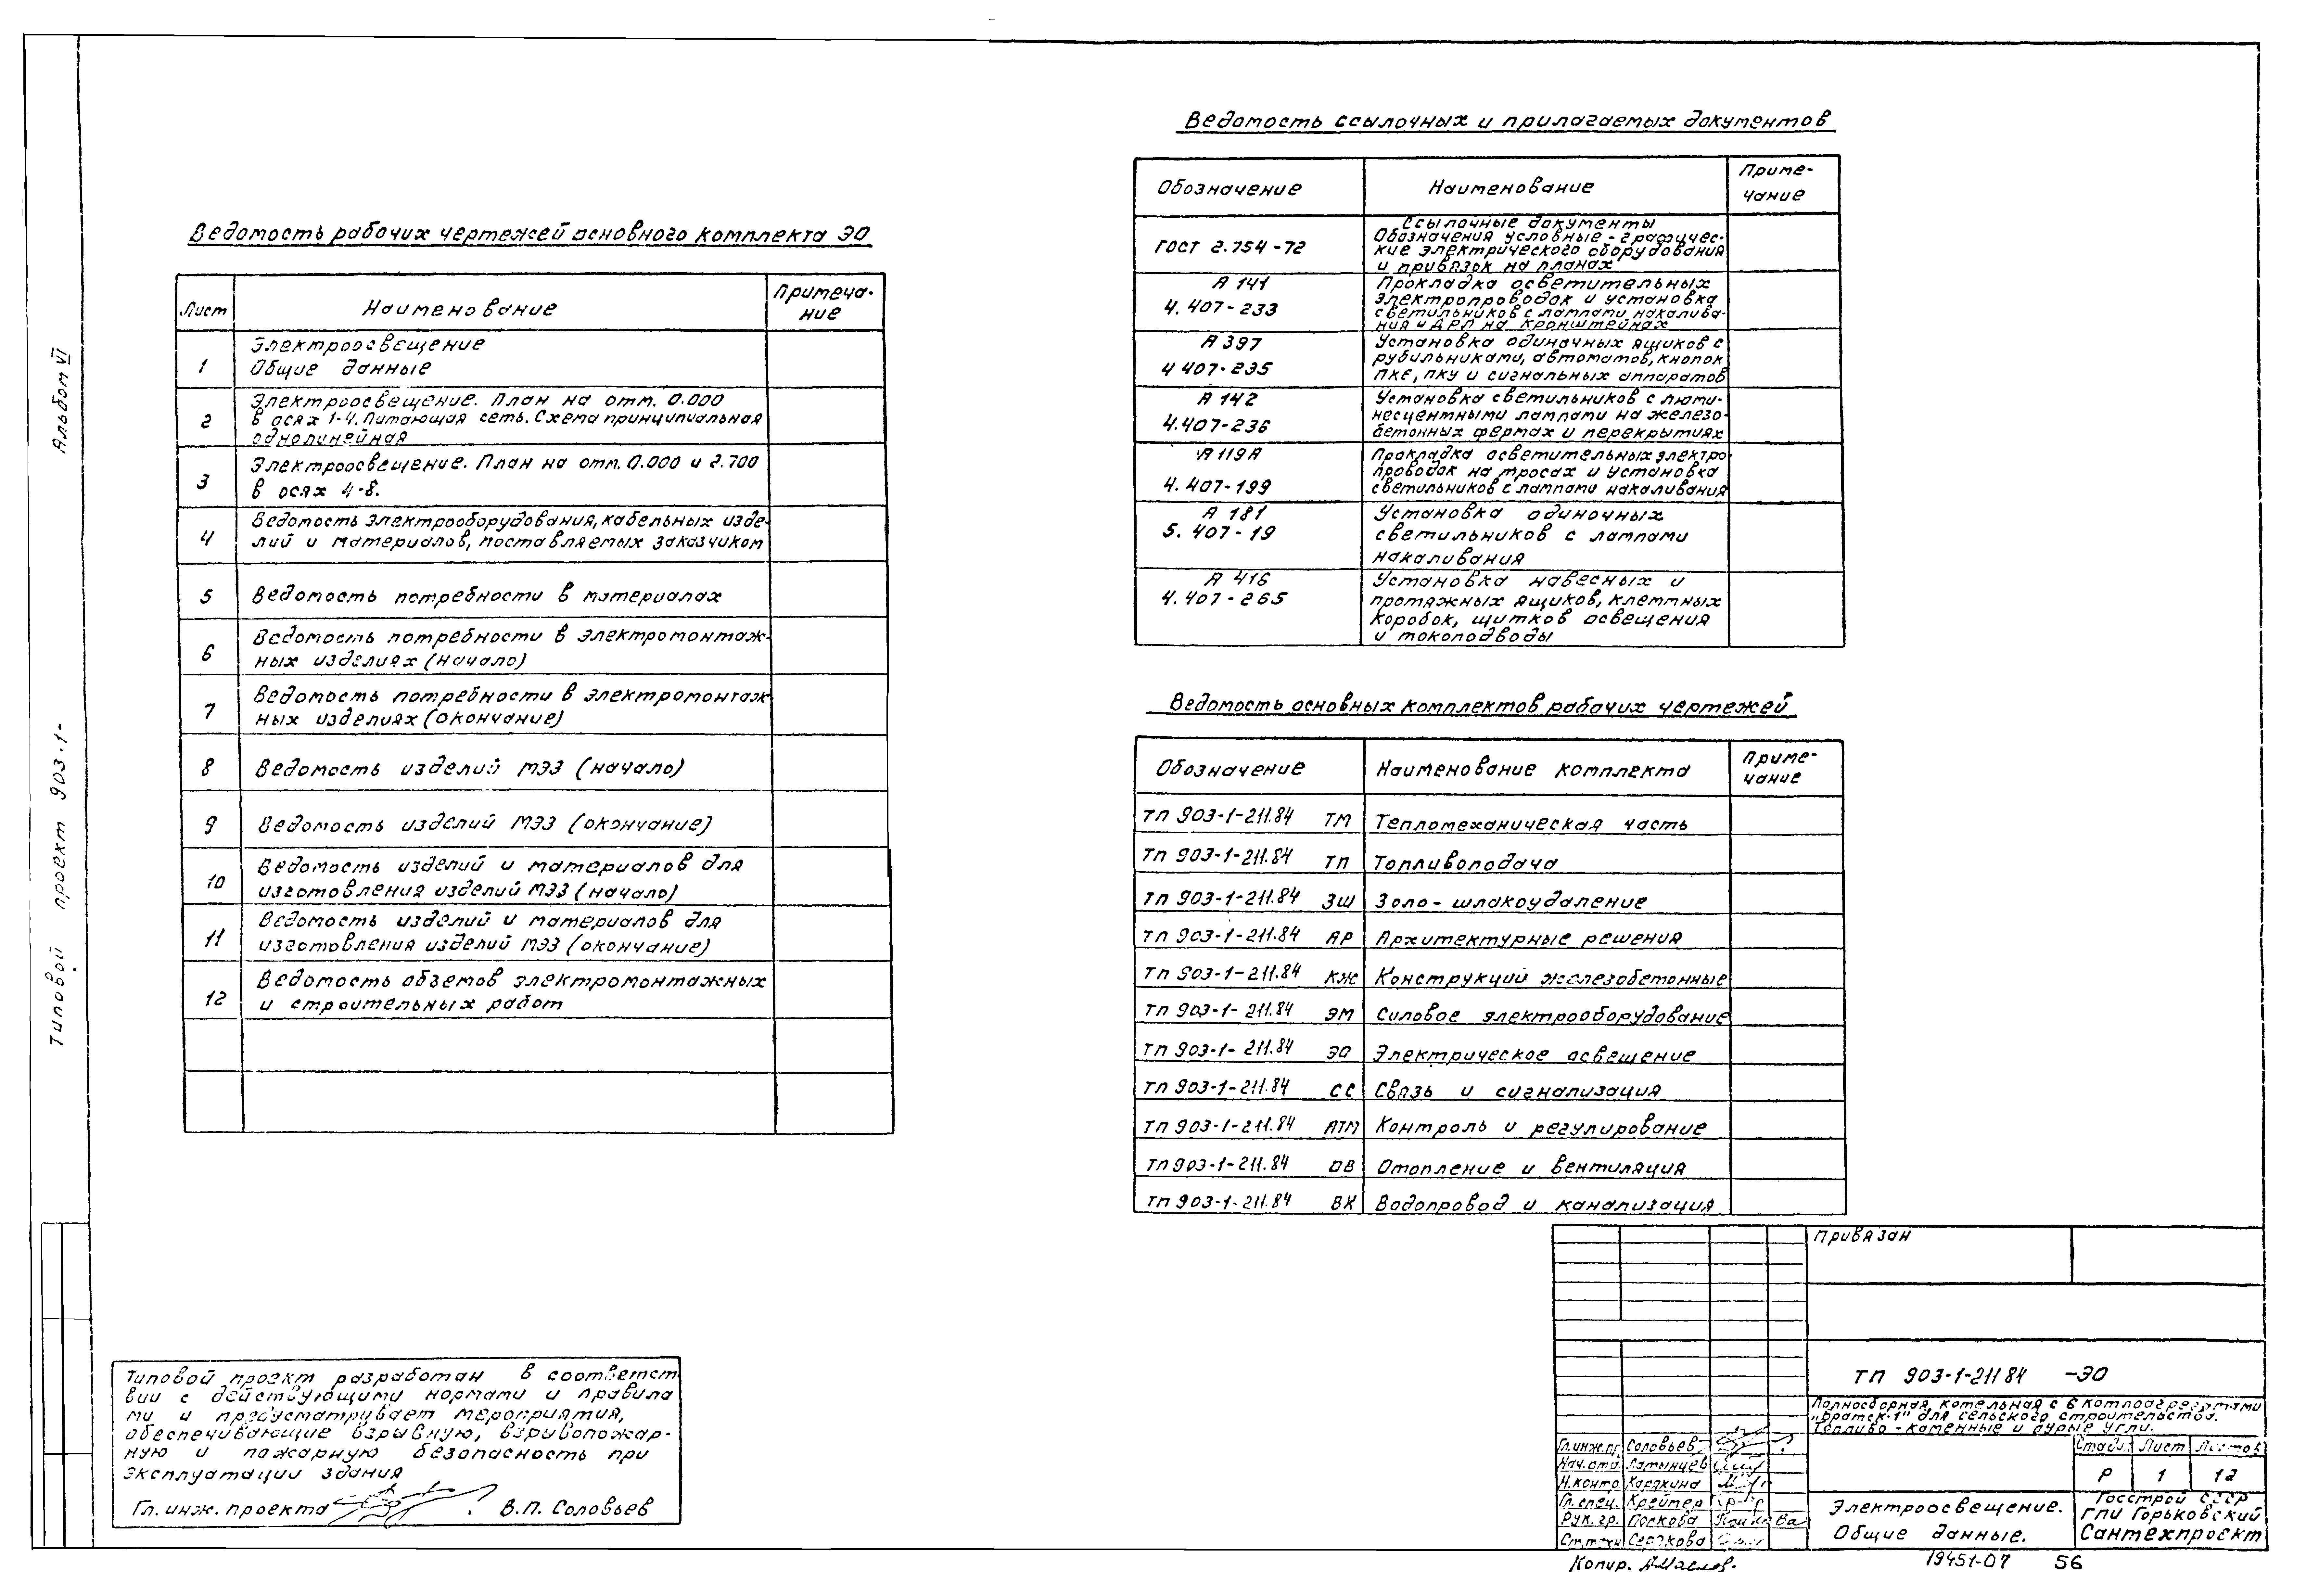 Альбом VI
Типовой проект 903-1-
Ведомость рабочих чертежей основного комплекта ЭО
Лист
Наименование
Примеча-
ние
1
Электроосвещение
Общие данные
2
Электроосвещение. План на отм. 0.000
в осях 1-4. Питающая сеть. Схема принципиальная
однолинейная
3
Электроосвещение. План на отм. 0.000 и 2.700
в осях 4-8.
4
Ведомость электрооборудования, кабельных изде-
лий и материалов, поставляемых заказчиком
5
Ведомость потребности в материалах
6
Ведомость потребности в электромонтаж-
ных изделиях (начало)
7
Ведомость потребности в электромонтаж
ных изделиях (окончание)
8
Ведомость изделий МЭЗ (начало)
9
Ведомость изделий МЭЗ (окончание)
10
Ведомость изделий и материалов для
изготовления изделий МЭЗ (начало)
11
Ведомость изделий и материалов для
изготовления изделий МЭЗ (окончание)
12
Ведомость объемов электромонтажных
и строительных работ
Типовой проект разработан в соответст
вии с действующими нормами и правила
ми и предусматривает мероприятия,
обеспечивающие взрывную, взрывопожар-
ную и пожарную безопасность при
эксплуатации здания
Гл. инж. проекта В.П. Соловьев
Ведомость ссылочных и прилагаемых документов
Обозначение
Наименование
Приме-
чание
Ссылочные документы
ГОСТ 2.754-72
Обозначения условные-графичес-
кие электрического оборудования
и привязок на планах
А 141
4.407-233
Прокладка осветительных
электропроводок и установка
светильников с лампами накалива-
ния и ДРЛ на кронштейнах
А 397
4 407-235
Установка одиночных ящиков с
рубильниками, автоматов, кнопок
ПКЕ, ПКУ и сигнальных аппаратов
А 142
4.407-236
Установка светильников с люми-
несцентными лампами на железо-
бетонных фермах и перекрытиях
А 119А
4.407-199
Прокладка осветительных электро
проводок на тросах и установка
светильников с лампами накаливания
А 181
5.407-19
Установка одиночных
светильников с лампами
накаливания
А 416
4.407-265
Установка навесных и
протяжных ящиков, клеммных
коробок, щитков освещения
и токоподводы
Ведомость основных комплектов рабочих чертежей
Обозначение
Наименование комплекта
Приме-
чание
ТП 903-1-211.84 ТМ Тепломеханическая часть
ТП 903-1-211.84 ТП Топливоподача
ТП 903-1-211.84 ЗШ Золо-шлакоудаление
ТП 903-1-211.84 АР Архитектурные решения
ТП 903-1-211.84 КЖ Конструкции железобетонные
ТП 903-1-211.84 ЭМ Силовое электрооборудование
ТП 903-1-211.84 ЭО Электрическое освещение
ТП 903-1-211.84 СС Связь и сигнализация
ТП 903-1-211.84 АТМ Контроль и регулирование
ТП 903-1-211.84 ОВ Отопление и вентиляция
ТП 903-1-211.84 ВК Водопровод и канализация
Привязан
ТП 903-1-211 84 -ЭО
Полносборная котельная с 6 котлоагрегатами
"Братск-1" для сельского строительства.
Топливо - каменные и бурые угли.
Гл.инж.пр. Соловьев
Нач.отд Латынцев
Н.контр. Карякина
Гл.спец. Крейтер
Рук.гр.
Ст.техн
Стадия Лист Листов
Р 1 12
Электроосвещение.
Общие данные.
Госстрой СССР
ГПИ Горьковский
Сантехпроект
Копир.
19451-07 56